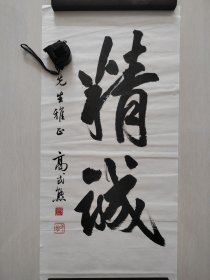 精诚
先生雅正
高式熊